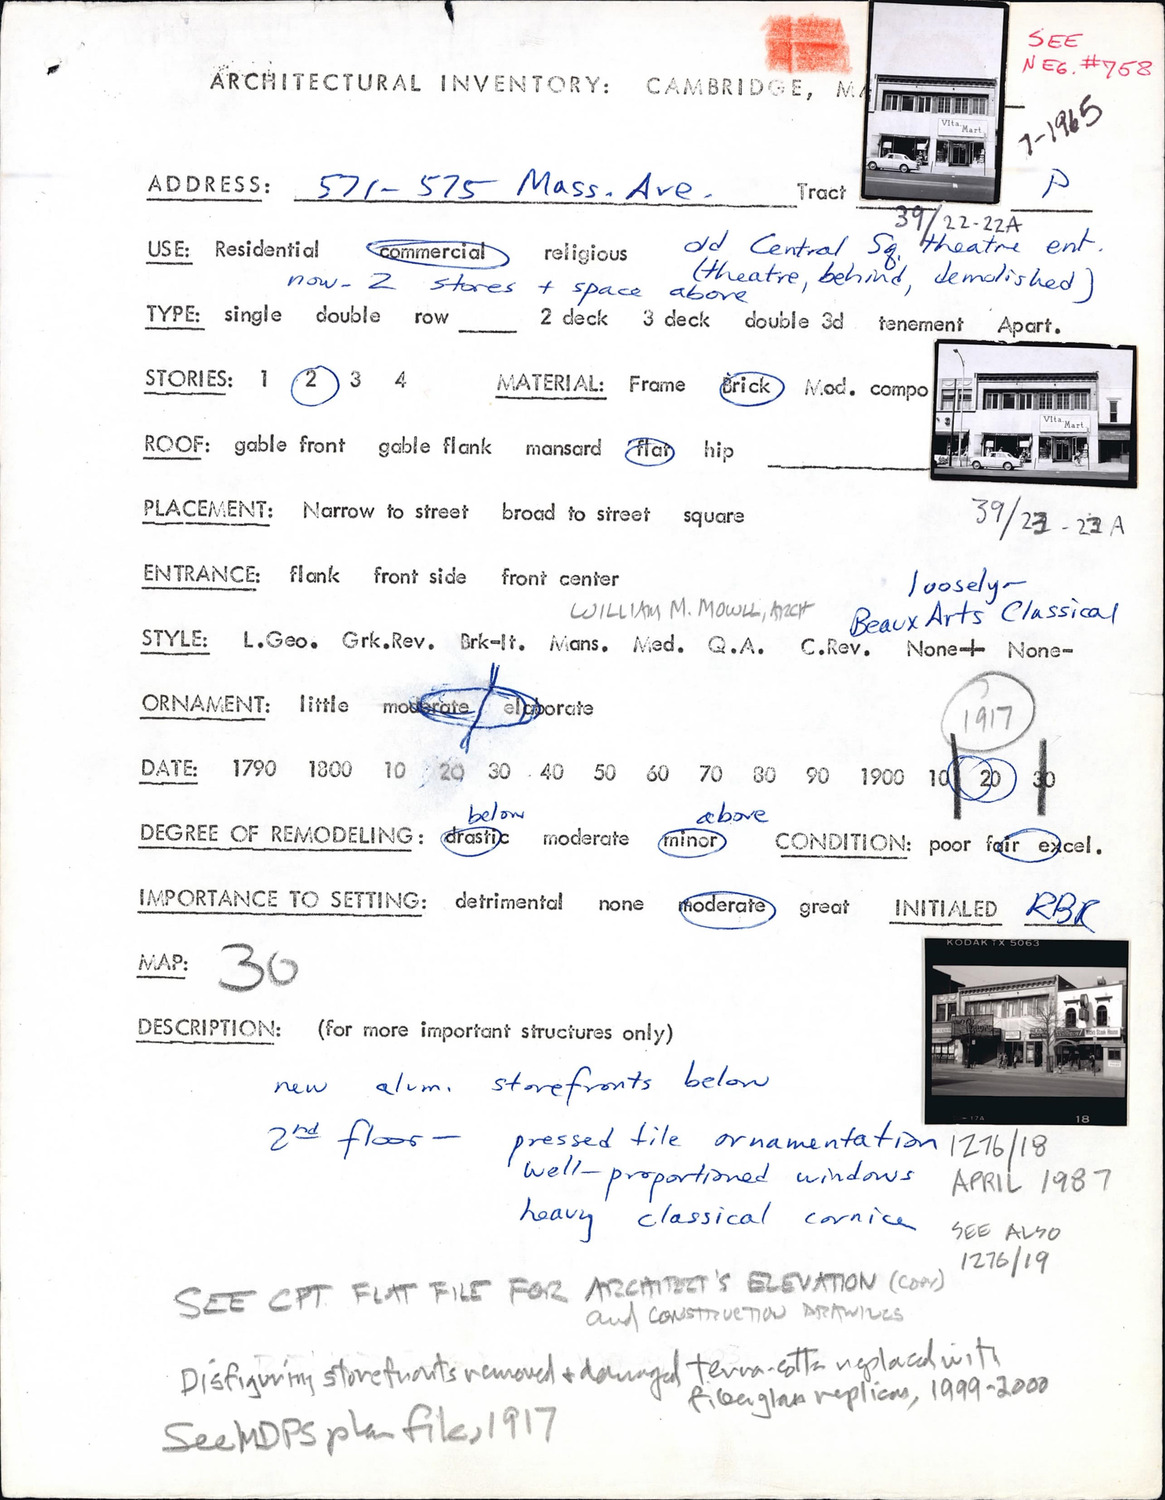 SEE
NEG. #758
ARCHITECTURAL INVENTORY: CAMBRIDGE, MA
Vita Mart
7-1965
ADDRESS: 571-575 Mass. Ave. Tract P
39/22-22A
USE: Residential commercial religious old Central Sq. theatre ent.
(theatre, behind, demolished)
now- 2 stores + space above
TYPE: single double row ____ 2 deck 3 deck double 3d tenement Apart.
STORIES: 1 2 3 4 MATERIAL: Frame Brick Mod. compo
Vita Mart
ROOF: gable front gable flank mansard flat hip
PLACEMENT: Narrow to street broad to street square
39/23-23A
ENTRANCE: flank front side front center
loosely-
WILLIAM M. MOWLL, ARCH Beaux Arts Classical
STYLE: L.Geo. Grk.Rev. Brk-It. Mans. Med. Q.A. C.Rev. None+ None-
ORNAMENT: little moderate elaborate
1917
DATE: 1790 1800 10 20 30 40 50 60 70 80 90 1900 10 20 30
below above
DEGREE OF REMODELING: drastic moderate minor CONDITION: poor fair excel.
IMPORTANCE TO SETTING: detrimental none moderate great INITIALED RBR
KODAK TX 5063
MAP: 30
DESCRIPTION: (for more important structures only)
new alum. storefronts below
17A 18
2nd floor - pressed tile ornamentation
well-proportioned windows
heavy classical cornice
1276/18
APRIL 1987
SEE ALSO
1276/19
SEE CPT FLAT FILE FOR ARCHITECT'S ELEVATION (COPY)
and CONSTRUCTION DRAWINGS
Disfiguring storefronts removed + damaged terra-cotta replaced with
fiberglass replicas, 1999-2000
See MDPS plan file, 1917